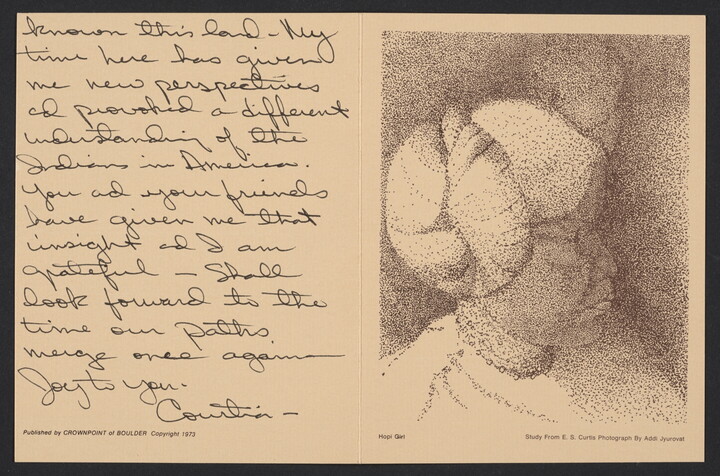 known this land - My
time here has given
me new perspectives
ad provoked a different
understanding of the
Indians in America.
You ad your friends
have given me that
insight ad I am
grateful - Shall
look forward to the
time our paths
merge once again -
Joy to you -
Published by CROWNPOINT of BOULDER Copyright 1973
Hopi Girl
Study From E. S. Curtis Photograph By Addi Jyurovat